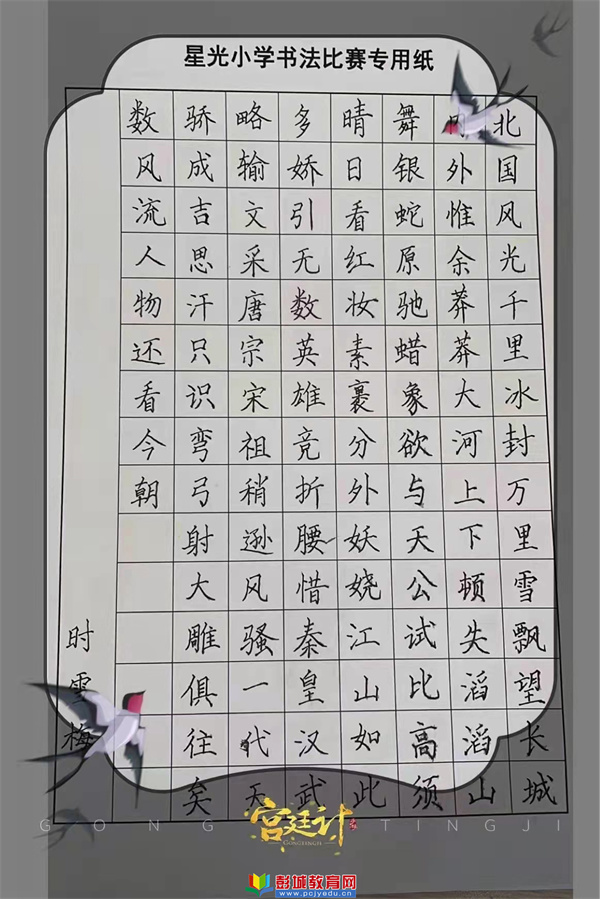 星光小学书法比赛专用纸
北国风光千里冰封万里雪飘望长城
内外惟余莽莽大河上下顿失滔滔山
舞银蛇原驰蜡象欲与天公试比高须
晴日看红妆素裹分外妖娆江山如此
多娇引无数英雄竞折腰惜秦皇汉武
略输文采唐宗宋祖稍逊风骚一代天
骄成吉思汗只识弯弓射大雕俱往矣
数风流人物还看今朝
时雪梅
GONG TINGJI
宫廷计
彭城教育网
www.pcjyedu.cn